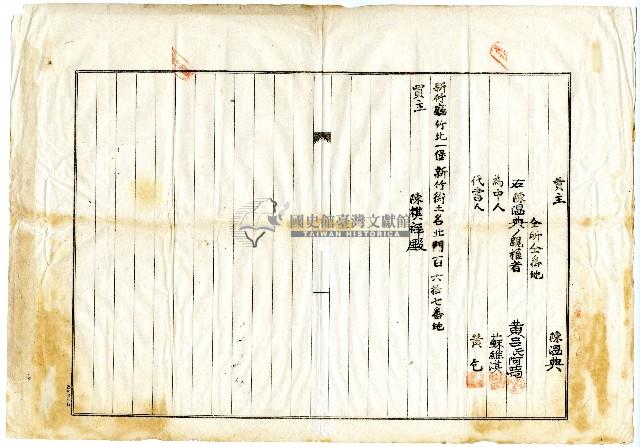 賣主
陳溫典
仝所仝番地
右陳溫典ノ親權者
黃呂氏阿
為中人
蘇維淇
代書人
黃乞
新竹廳竹北一堡新竹街土名北門百六拾七番地
買主
陳棋祥殿
國史館臺灣文獻館
TAIWAN HISTORICA